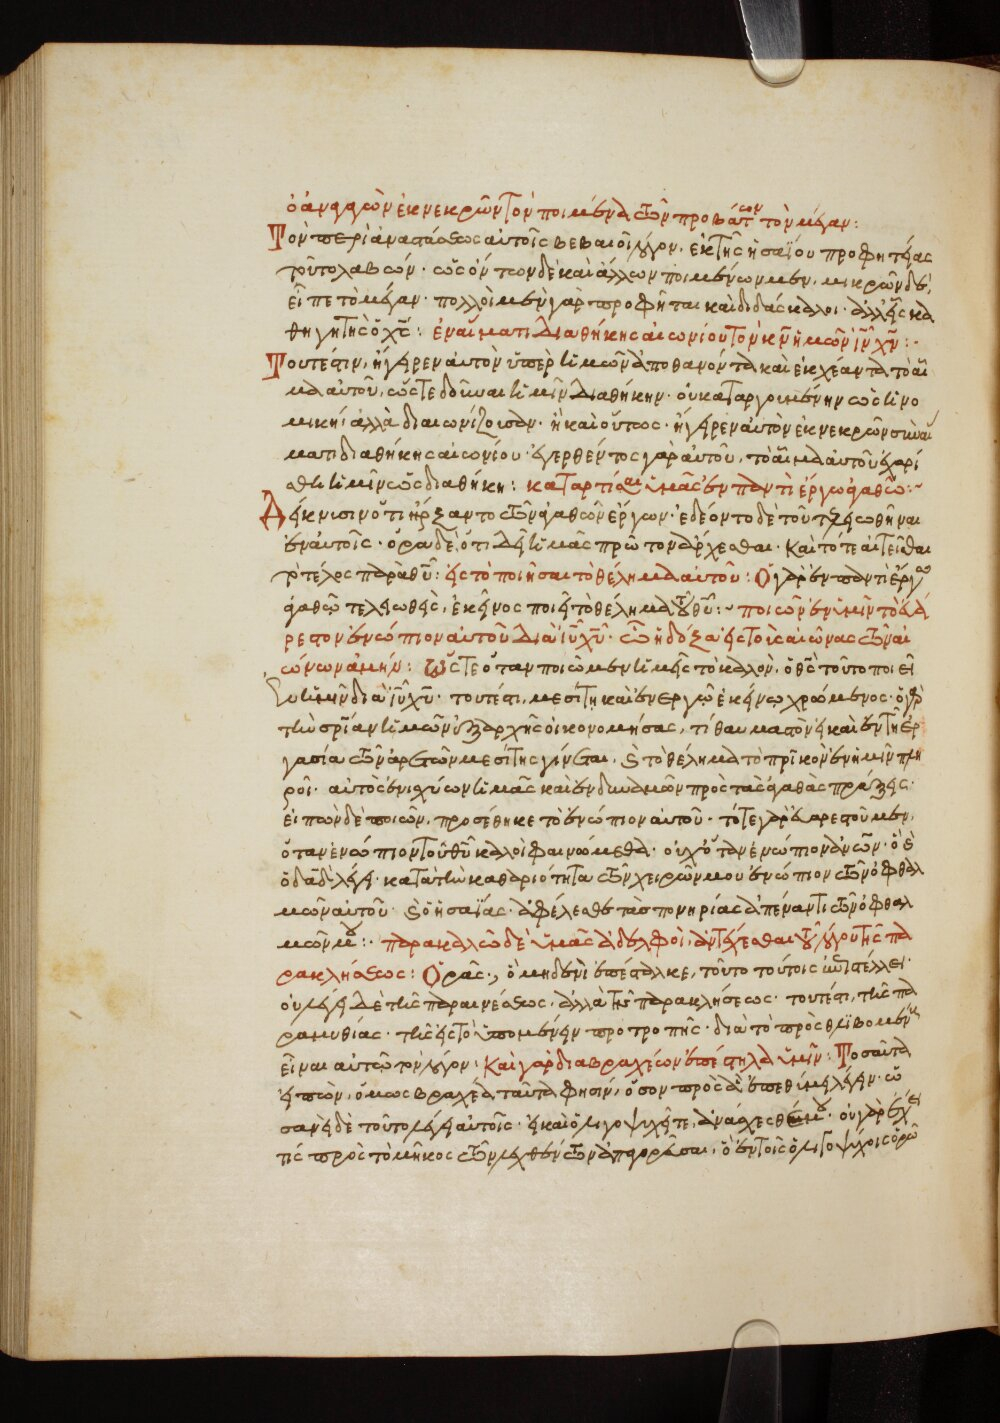 ὁ ἀναγαγὼν ἐκ νεκρῶν τὸν ποιμένα τῶν προβάτων τὸν μέγαν:
Τὸν περὶ ἀναστάσεως αὐτοῖς βεβαιοῖ λόγον. ἐκ τῆς ἡσαΐου προφητείας
τοῦτο λαβών.
εἶπε τὸ μέγαν· πολλοὶ μὲν γὰρ προφῆται καὶ διδάσκαλοι· ἀλλ' εἷς κα
θηγητὴς ὁ χς: ἐν αἵματι διαθήκης αἰωνίου τὸν κν ἡμῶν ιν χν:
Τουτέστιν, ἤγειρεν αὐτὸν ὑπὲρ ἡμῶν ἀποθανόντα καὶ ἐκχέαντα τὸ αἷ
μα αὐτοῦ, ὥστε δοῦναι ἡμῖν διαθήκην· οὐ καταργουμένην ὡς ἡ νο
μικὴ ἀλλὰ διαιωνίζουσαν· ἢ καὶ οὕτως· ἤγειρεν αὐτὸν ἐκ νεκρῶν σὺν αἵ
ματι διαθήκης αἰωνίου· ἐγερθέντος γὰρ αὐτοῦ, τὸ αἷμα αὐτοῦ ἐχαρί
σθη ἡμῖν ὡς διαθήκη: καταρτίσαι ὑμᾶς ἐν παντὶ ἔργῳ ἀγαθῷ:
Δείκνυσιν ὅτι ἤρξαντο τῶν ἀγαθῶν ἔργων· ἐδέοντο δὲ τοῦ τελειωθῆναι
ἐν αὐτοῖς· ὅρα δὲ, ὅτι δεῖ ἡμᾶς πρῶτον ἄρχεσθαι· καὶ τότε αἰτεῖσθαι
τὸ τέλος παρὰ θυ: εἰς τὸ ποιῆσαι τὸ θέλημα αὐτοῦ: Ὁ γὰρ ἐν παντὶ ἔργῳ
ἀγαθῷ τελειωθεὶς, ἐκεῖνος ποιεῖ τὸ θέλημα τοῦ θυ: ποιῶν ἐν ὑμῖν τὸ εὐά
ρεστον ἐνώπιον αὐτοῦ διὰ ιυ χυ· ᾧ ἡ δόξα εἰς τοὺς αἰῶνας τῶν αἰ
ώνων ἀμήν: Ὥστε ὅταν ποιῶμεν ἡμεῖς τὸ καλὸν, ὁ θς τοῦτο ποιεῖ
ἐν ἡμῖν διὰ ιυ χυ· τουτέστι, μεσίτῃ καὶ συνεργῷ ἐκείνῳ χρώμενος· ὁ γὰρ
τὴν σρίαν ἡμῶν ἐξ ἀρχῆς οἰκονομήσας, τί θαυμαστὸν εἰ καὶ ἐν τῇ ἐρ
γασίᾳ τῶν ἀρετῶν μεσίτης γίνεται. καὶ τὸ θέλημα τὸ πρικὸν ἐν ἡμῖν πλη
ροῖ· αὐτὸς ἐνισχύων ἡμᾶς καὶ ἐνδυναμῶν πρὸς τὰς ἀγαθὰς πράξεις·
εἰπὼν δὲ ποιῶν, προσέθηκε τὸ ἐνώπιον αὐτοῦ· τότε γὰρ εὐαρεστοῦμεν,
ὅταν ἐνώπιον τοῦ θυ καλοὶ φαινώμεθα· οὐχ ὅταν ἐνώπιον ἀνων·
ὁ δαδ λέγει· κατὰ τὴν καθαριότητα τῶν χειρῶν μου ἐνώπιον τῶν ὀφθαλ
μῶν αὐτοῦ· καὶ ὁ ἡσαΐας· ἀφέλεσθε τὰς πονηρίας ἀπέναντι τῶν ὀφθαλ
μῶν μου: παρακαλῶ δὲ ὑμᾶς ἀδελφοὶ, ἀνέχεσθαι τοῦ λόγου τῆς πα
ρακλήσεως: Ὁρᾶς, ὃ μηδενὶ ἐπέσταλκε, τοῦτο τούτοις ἐπιστέλλει·
οὐ λέγει δὲ τῆς παραινέσεως, ἀλλὰ τῆς παρακλήσεως· τουτέστι, τῆς πα
ραμυθίας· τῆς εἰς τὸ ὑπομένειν προτροπῆς· διὰ τὸ πρὸς θλιβομένους
εἶναι αὐτῷ τὸν λόγον: καὶ γὰρ διὰ βραχέων ἐπέστειλα ὑμῖν: Τοσαῦτα
εἰπὼν, ὅμως βραχέα ταῦτα φησὶν, ὅσον πρὸς ἃ ἐπεθύμει λέγειν·
δὲ τοῦτο λέγει αὐτοῖς· εἰ καὶ ὀλιγοψυχεῖτε, ἀνάσχεσθέ μου· οὐ γὰρ ἔχει
τις πρὸς τὸ μῆκος τῶν λεχθέντων ἀπαγορεῦσαι, ὃ ἐν τοῖς ὀλιγοψύχοις ὁρῶ